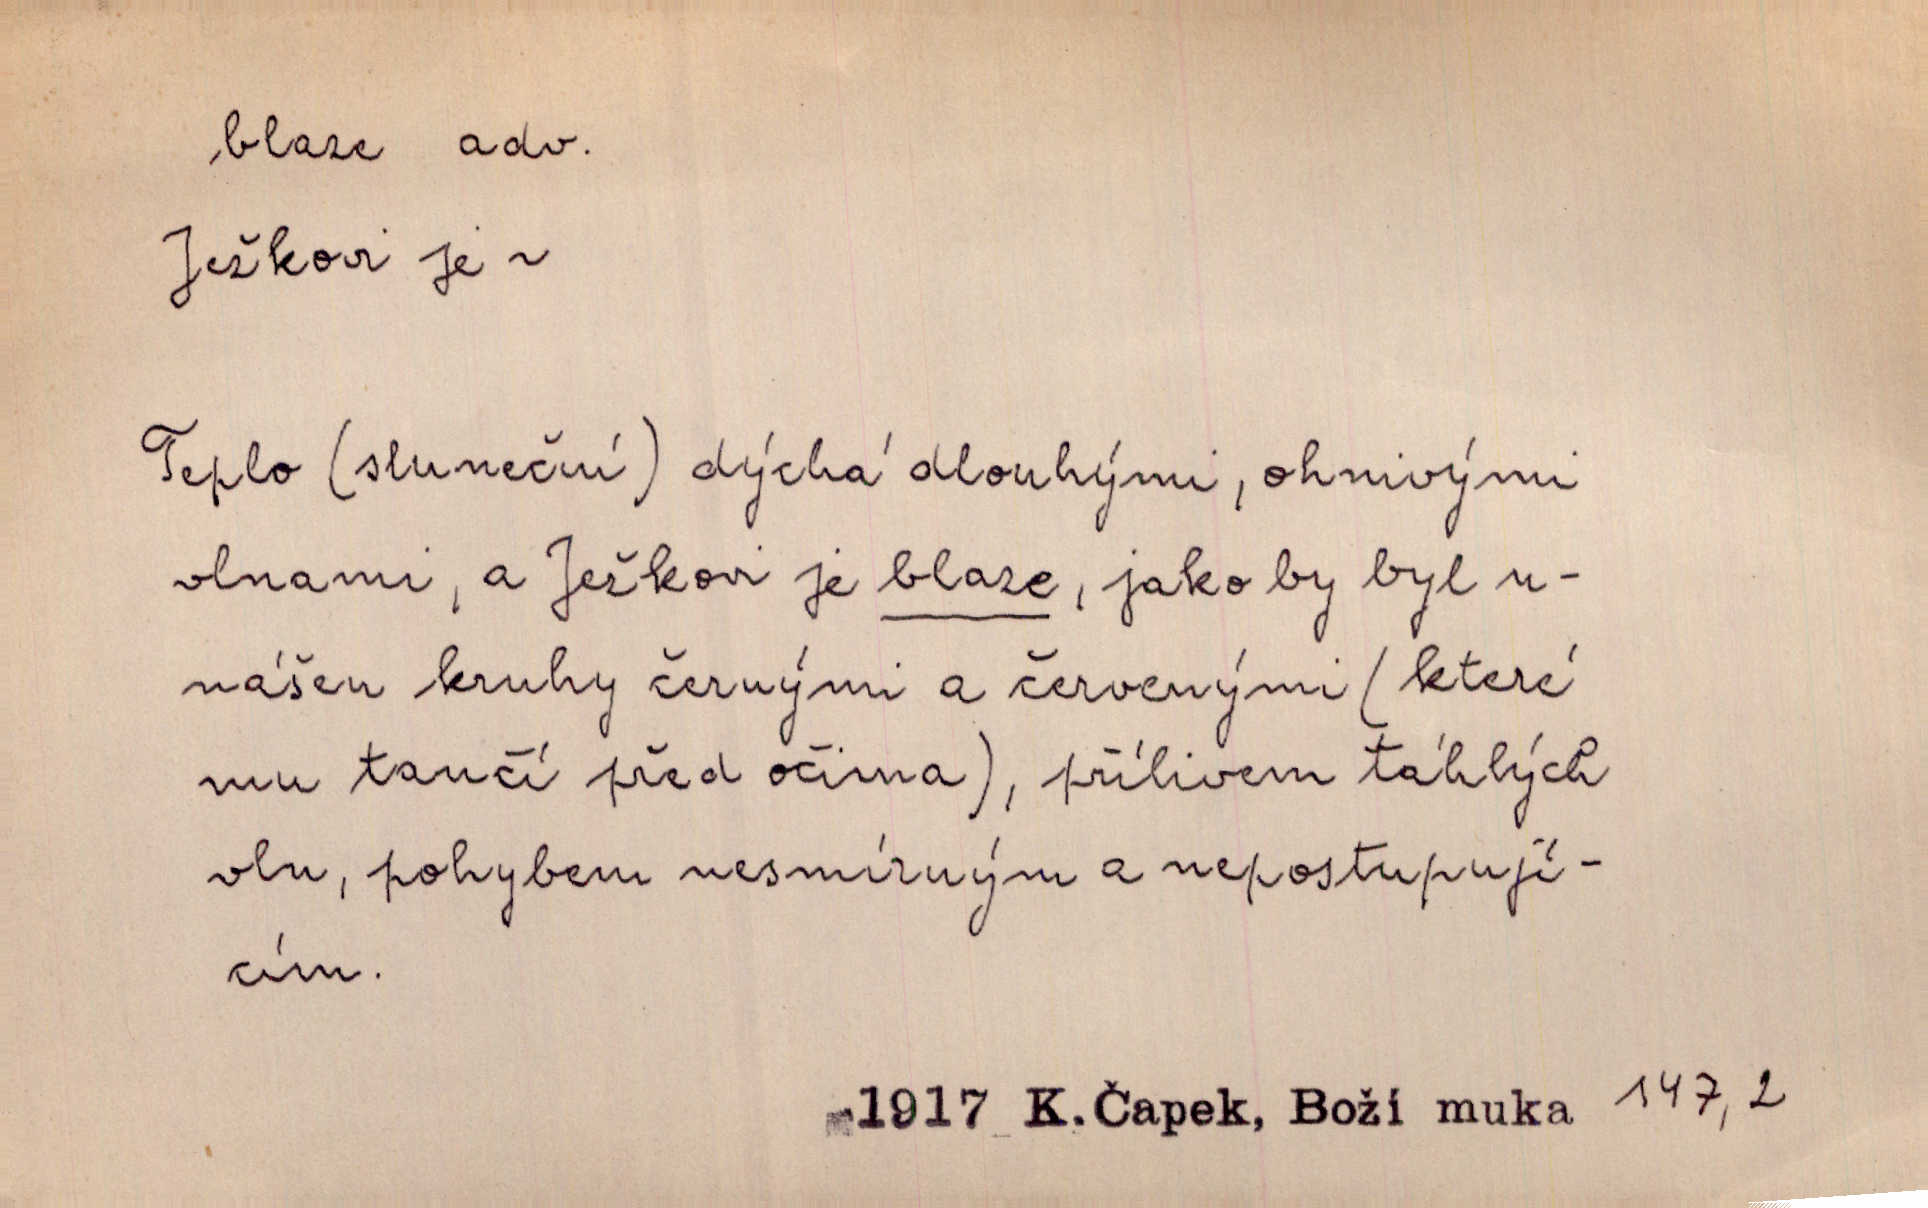 blaze adv.
Ježkovi je ~
Teplo (sluneční) dýchá dlouhými, ohnivými
vlnami, a Ježkovi je blaze, jako by byl u-
nášen kruhy černými a červenými (které
mu tančí před očima), přílivem táhlých
vln, pohybem nesmírným a nepostupují-
cím.
1917 K. Čapek, Boží muka 147,2